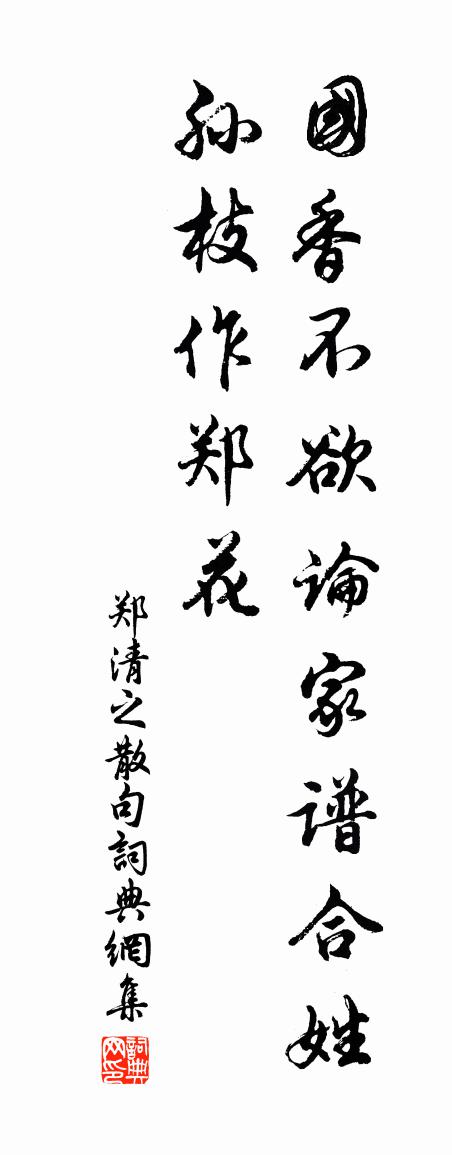 國香不欲論家谱合姓
孙枝作郑花
郑清之散句詞典網集
詞典网印